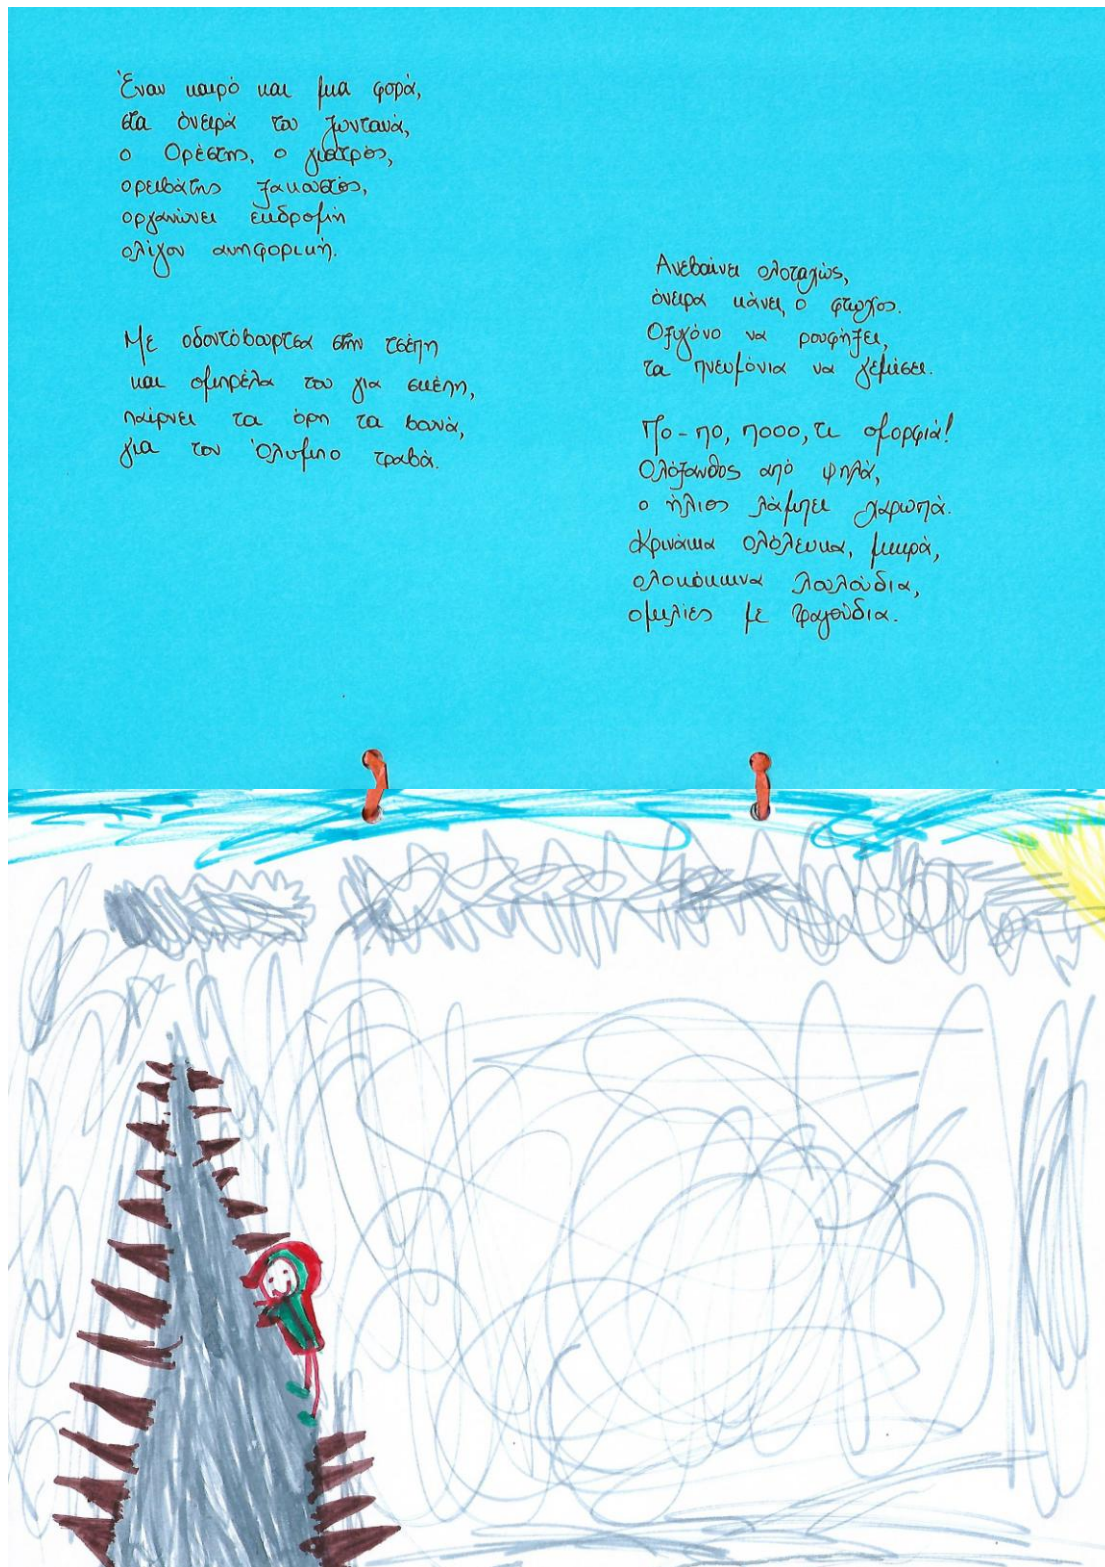 Έναν καιρό και μια φορά,
στα όνειρά του ζωντανά,
ο Ορέστης, ο γιατρός,
ορειβάτης ξακουστός,
οργανώνει εκδρομή
ολίγον ανηφορική.
Με οδοντόβουρτσα στην τσέπη
και ομπρέλα του για σκέπη,
παίρνει τα όρη τα βουνά,
για τον Όλυμπο τραβά.
Ανεβαίνει ολοταχώς,
όνειρα κάνει, ο φτωχός.
Οξυγόνο να ρουφήξει,
τα πνευμόνια να γεμίσει.
Πο-πο, ποοο, τι ομορφιά!
Ολόξανθος από ψηλά,
ο ήλιος λάμπει χαρωπά.
Κρινάκια ολόλευκα, μικρά,
ολοκόκκινα λουλούδια,
ομιλίες με τραγούδια.